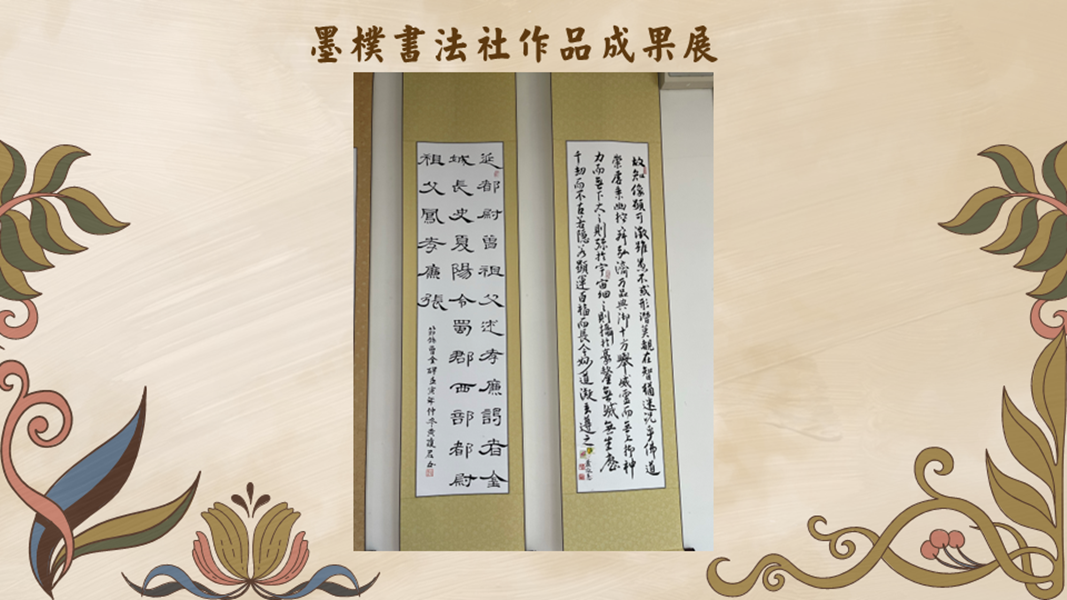 墨樸書法社作品成果展
故知像顯可徵雖愚不惑形潛莫覩在智猶迷況乎佛道
崇虛乘幽控寂弘濟万品典御十方舉威靈而無上抑神
力而無下大之則彌於宇宙細之則攝於豪釐無滅無生歷
千劫而不古若隱若顯運百福而長今妙道凝玄遵之
延都尉曾祖父述孝廉謁者金
城長史夏陽令蜀郡西部都尉
祖父鳳孝廉張
節臨曹全碑庚寅年仲冬